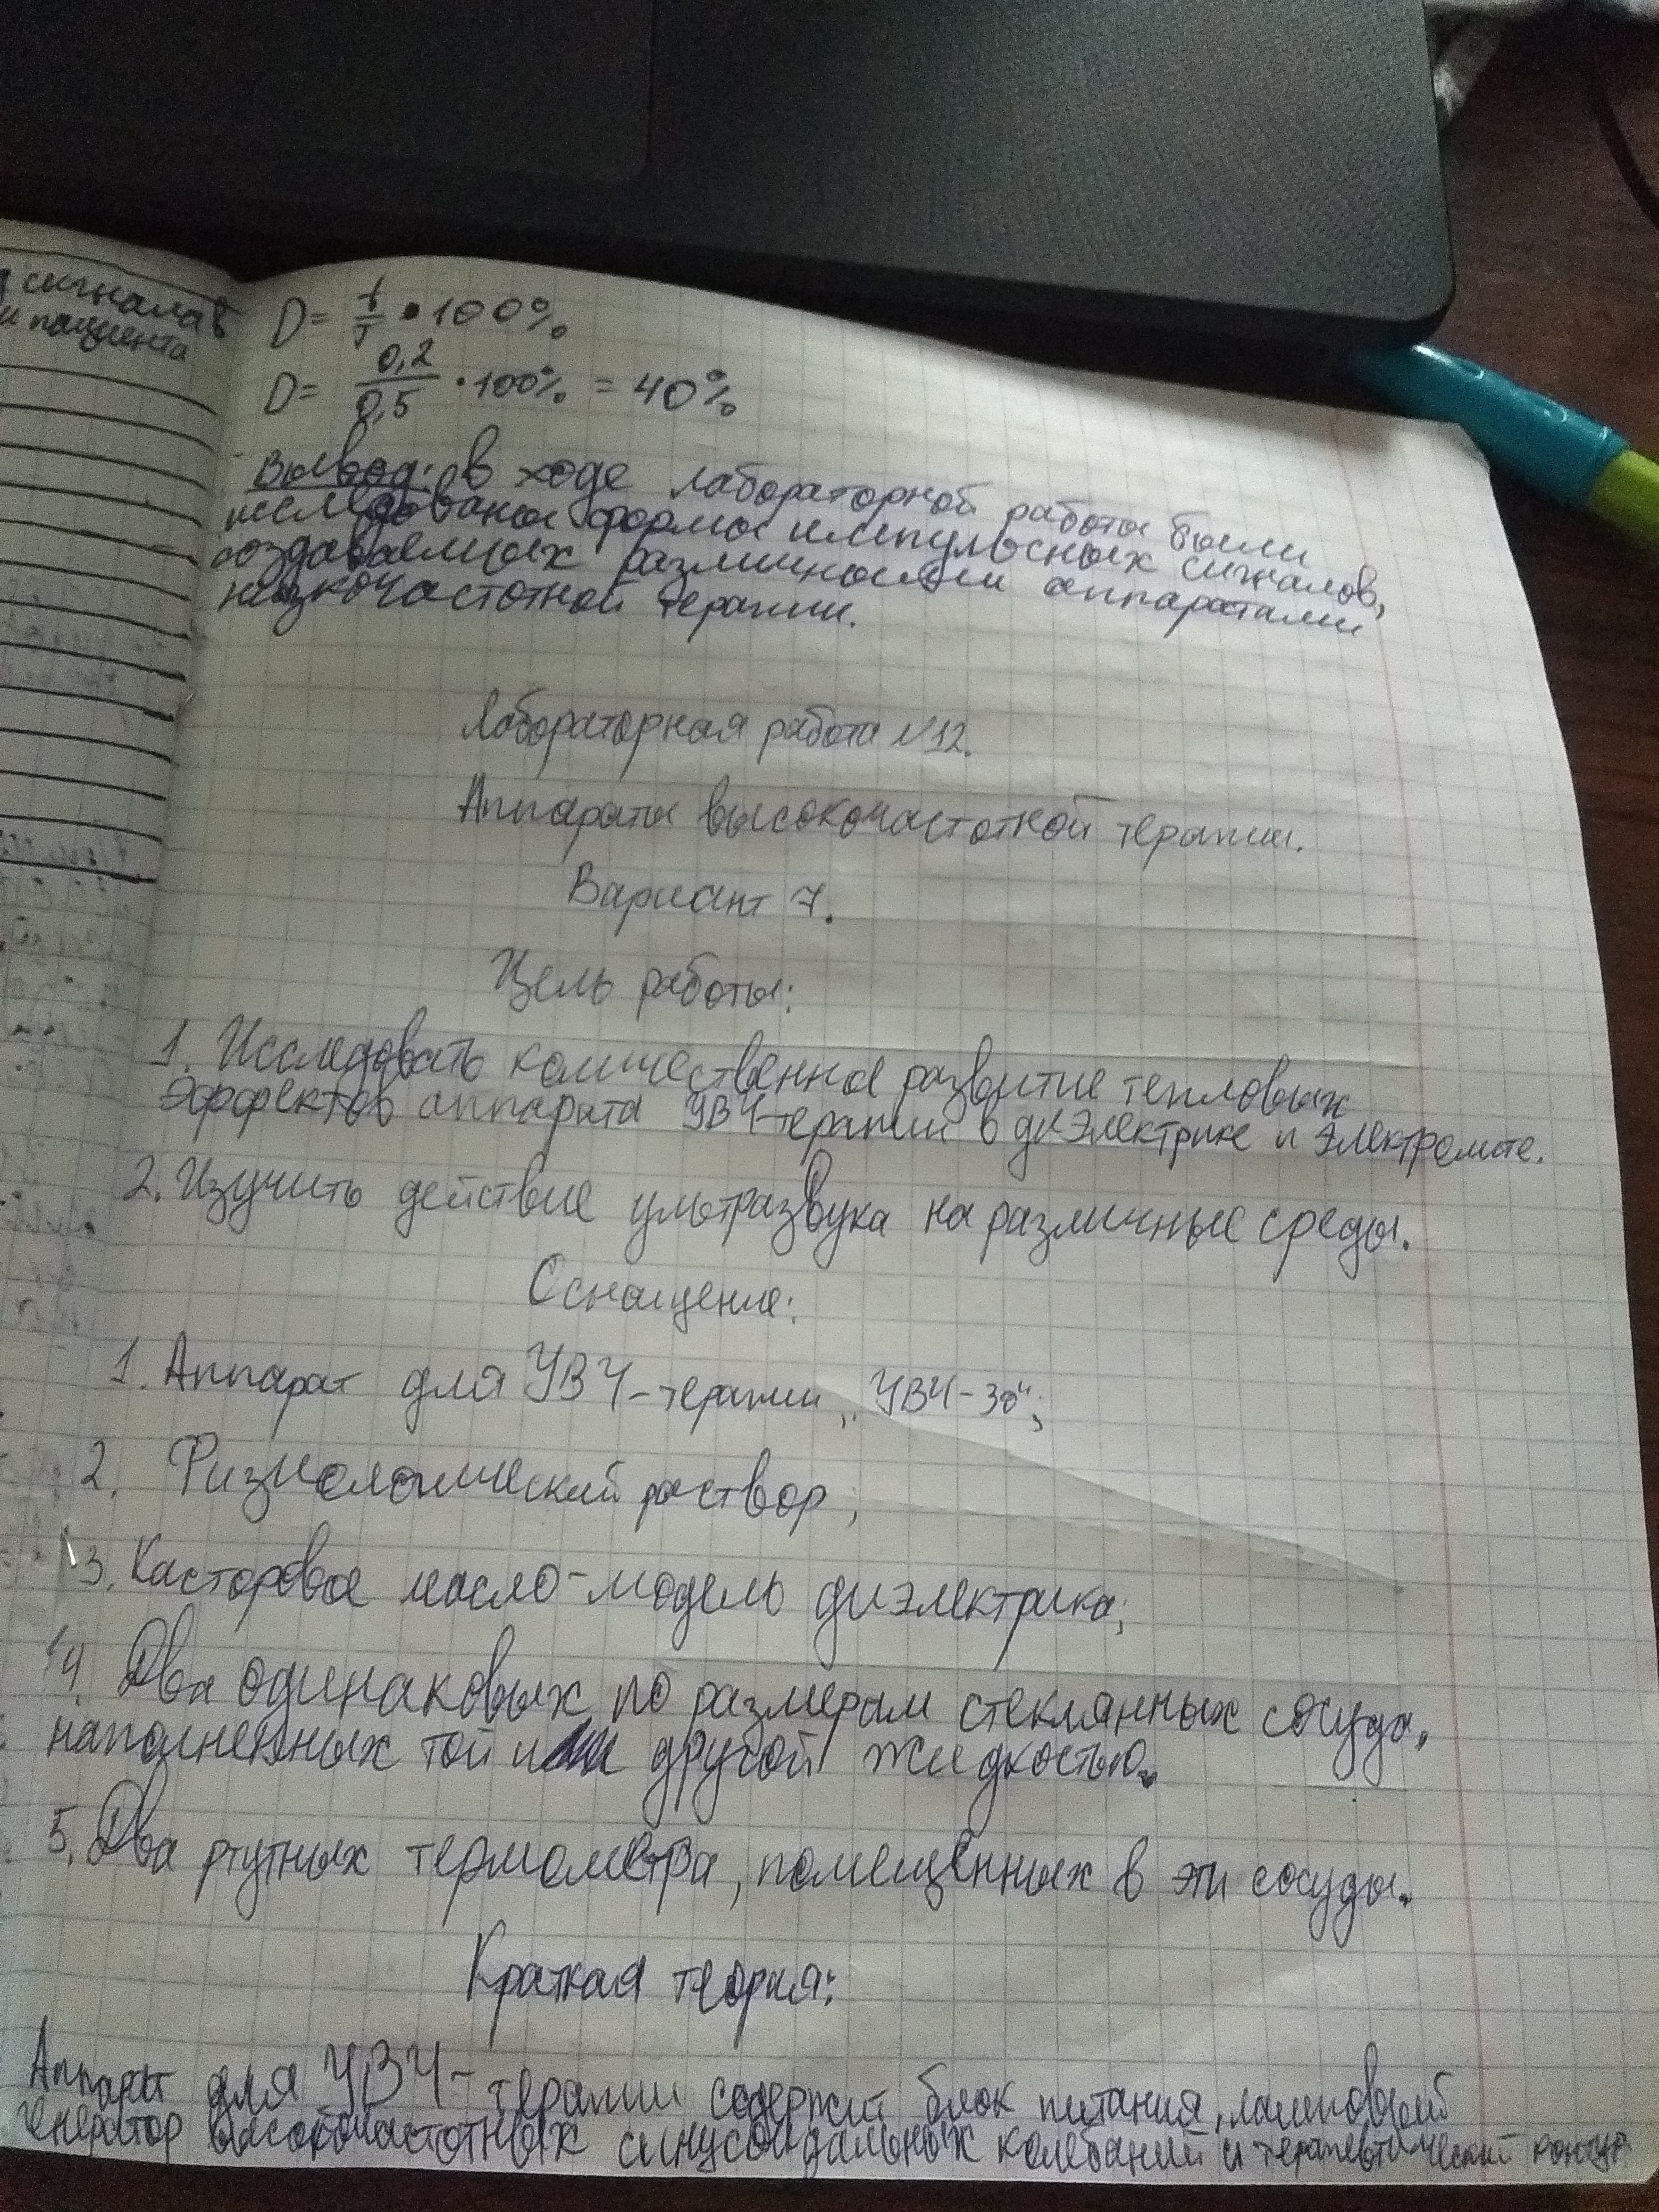 сигнала в
и пациента
D = t/T • 100%
D = 0,2/0,5 · 100% = 40%
Вывод: в ходе лабораторной работы были
исследованы формы импульсных сигналов,
создаваемых различными аппаратами
низкочастотной терапии.
Лабораторная работа №12.
Аппараты высокочастотной терапии.
Вариант 7.
Цель работы:
1. Исследовать количественное развитие тепловых
эффектов аппарата УВЧ-терапии в диэлектрике и электролите.
2. Изучить действие ультразвука на различные среды.
Оснащение:
1. Аппарат для УВЧ-терапии „УВЧ-30";
2. Физиологический раствор;
3. Касторовое масло-модель диэлектрика;
4. Два одинаковых по размерам стеклянных сосуда,
наполненных той или другой жидкостью.
5. Два ртутных термометра, помещенных в эти сосуды.
Краткая теория:
Аппарат для УВЧ-терапии содержит блок питания, ламповый
генератор высокочастотных синусоидальных колебаний и терапевтический контур